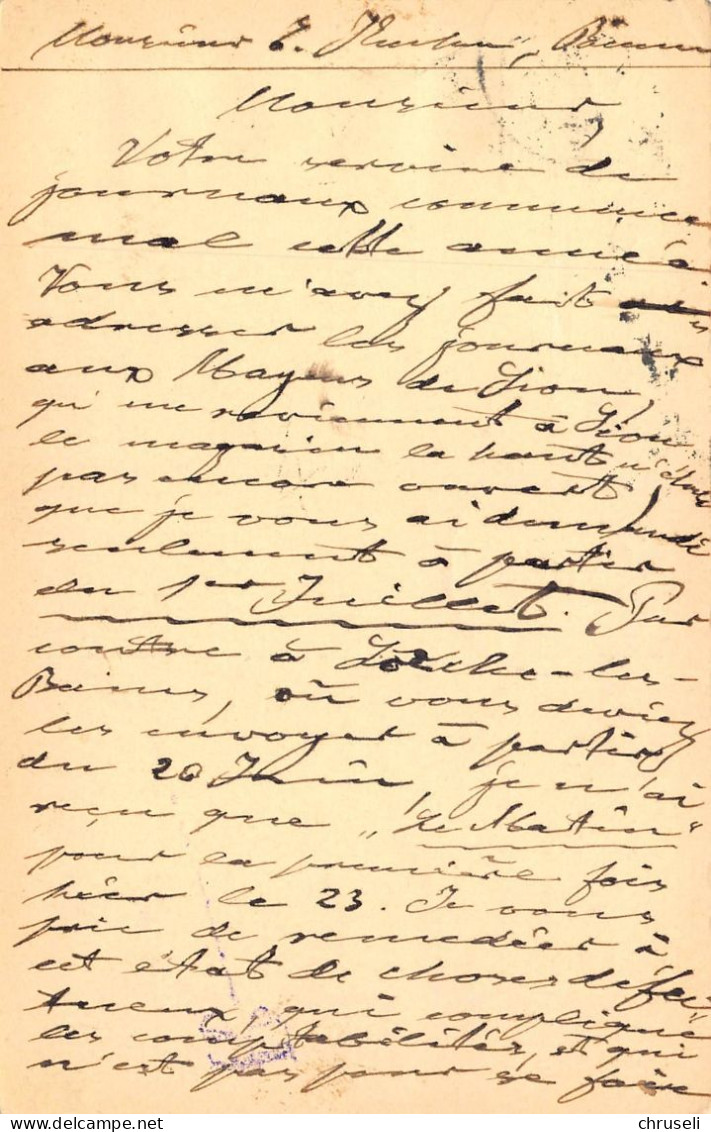 Monsieur E.
Monsieur,
Votre service de
journaux commence
mal cette année.
Vous m'avez fait
adresser les journaux
aux Mayens de Sion,
qui me reviennent à Sion
le magasin là haut n'étant
pas encore ouvert,
que je vous ai demandé
seulement à partir
du 1er Juillet. Par
contre à Loèche-les-
Bains, où vous deviez
les envoyer à partir
du 20 Juin, je n'ai
reçu que „Le Matin"
pour la première fois
hier le 23. Je vous
prie de remedier à
cet état de choses défec
tueux, qui complique
les comptabilités, et qui
n'est pas pour se faire
chruseli